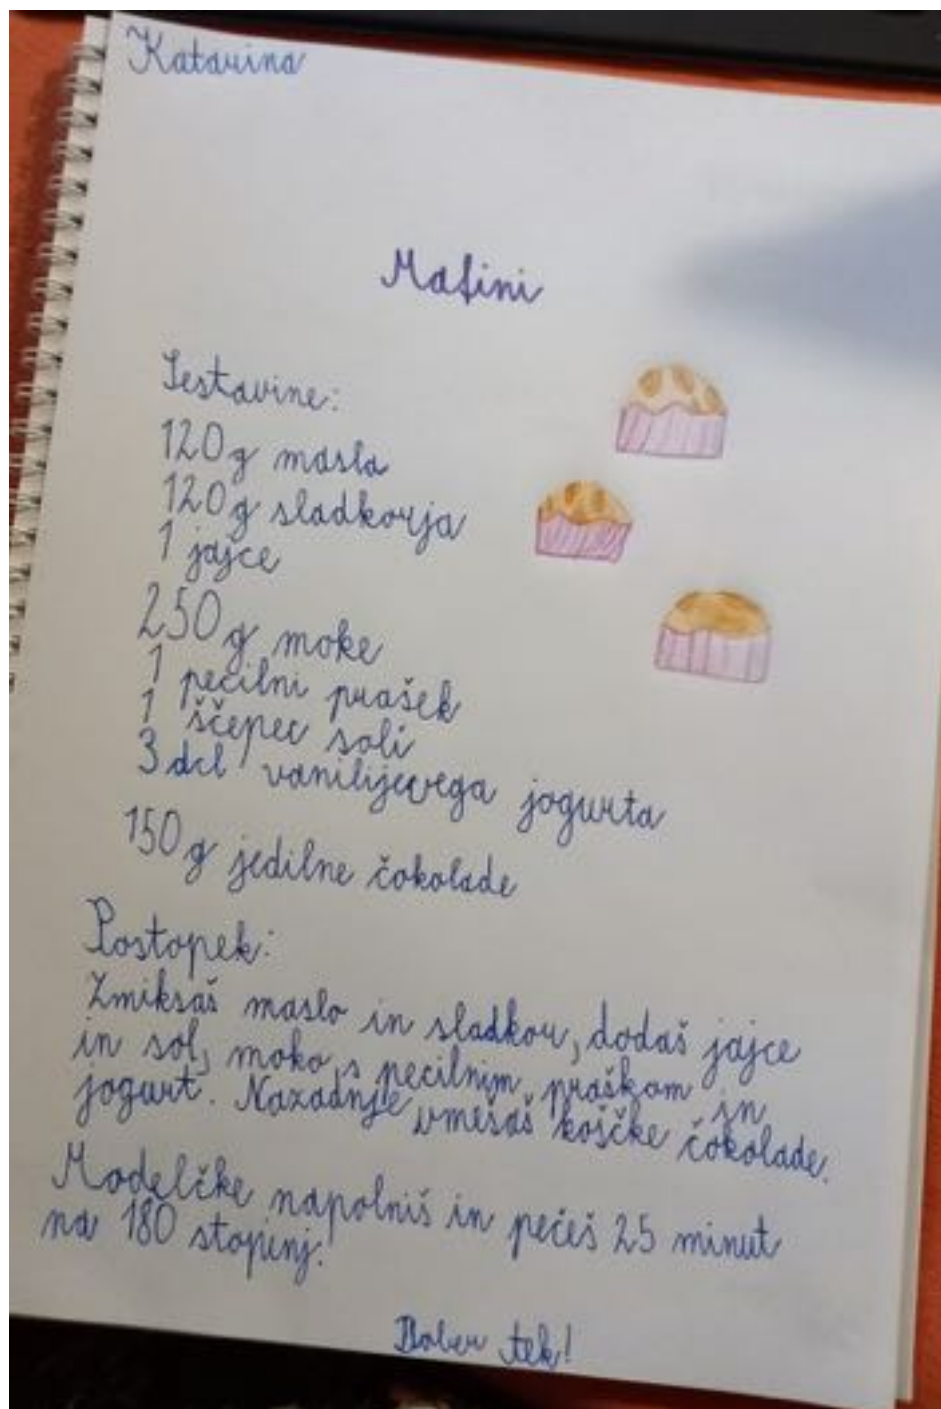 Katarina
Mafini
Sestavine:
120g masla
120g sladkorja
1 jajce
250g moke
1 pecilni prašek
1 ščepec soli
3 dcl vanilijevega jogurta
150g jedilne čokolade
Postopek:
Zmiksaš maslo in sladkor, dodaš jajce
in sol, moko s pecilnim praškom in
jogurt. Nazadnje vmešaš koščke čokolade.
Modelčke napolniš in pečeš 25 minut
na 180 stopinj.
Dober tek!